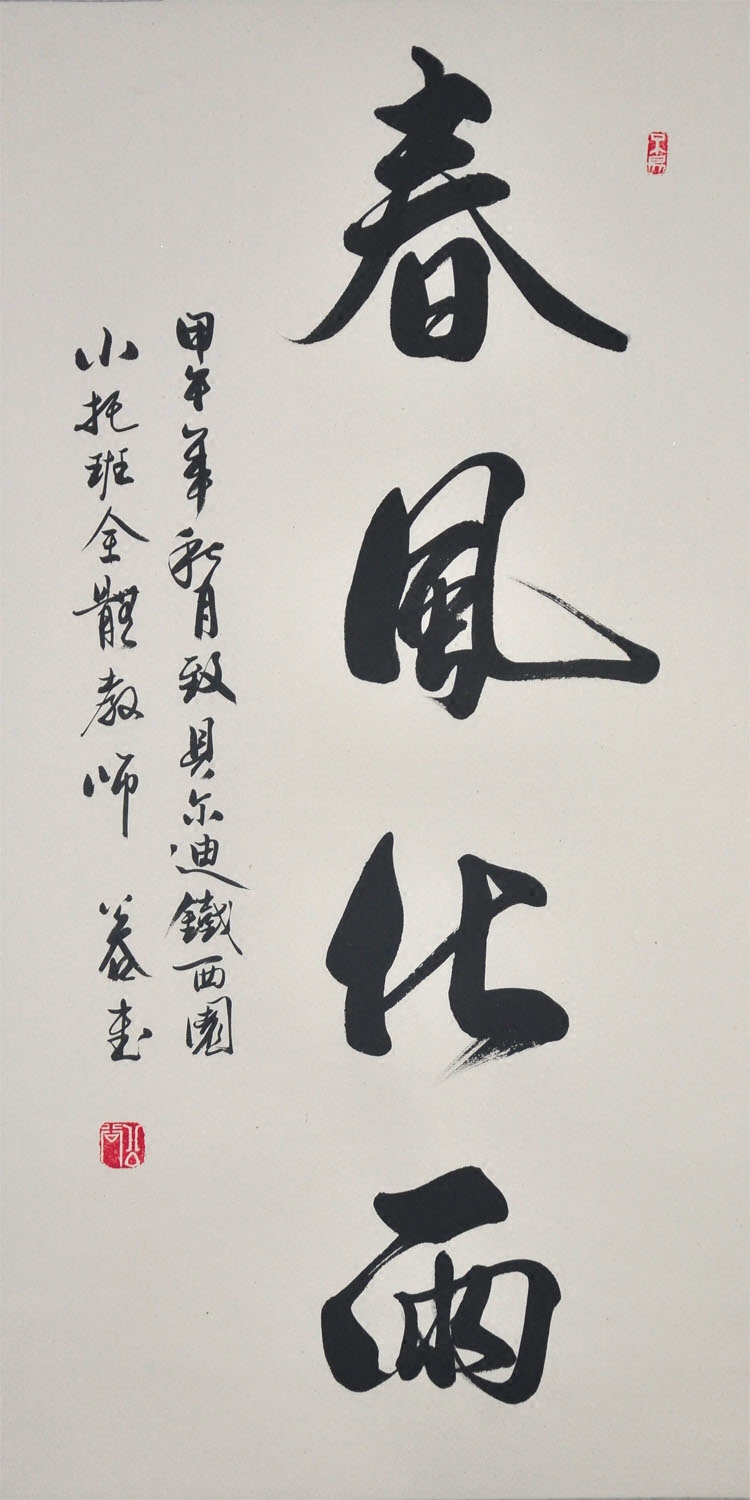 春風化雨
甲午年秋月致貝尔迪鐵西園
小托班全體教师